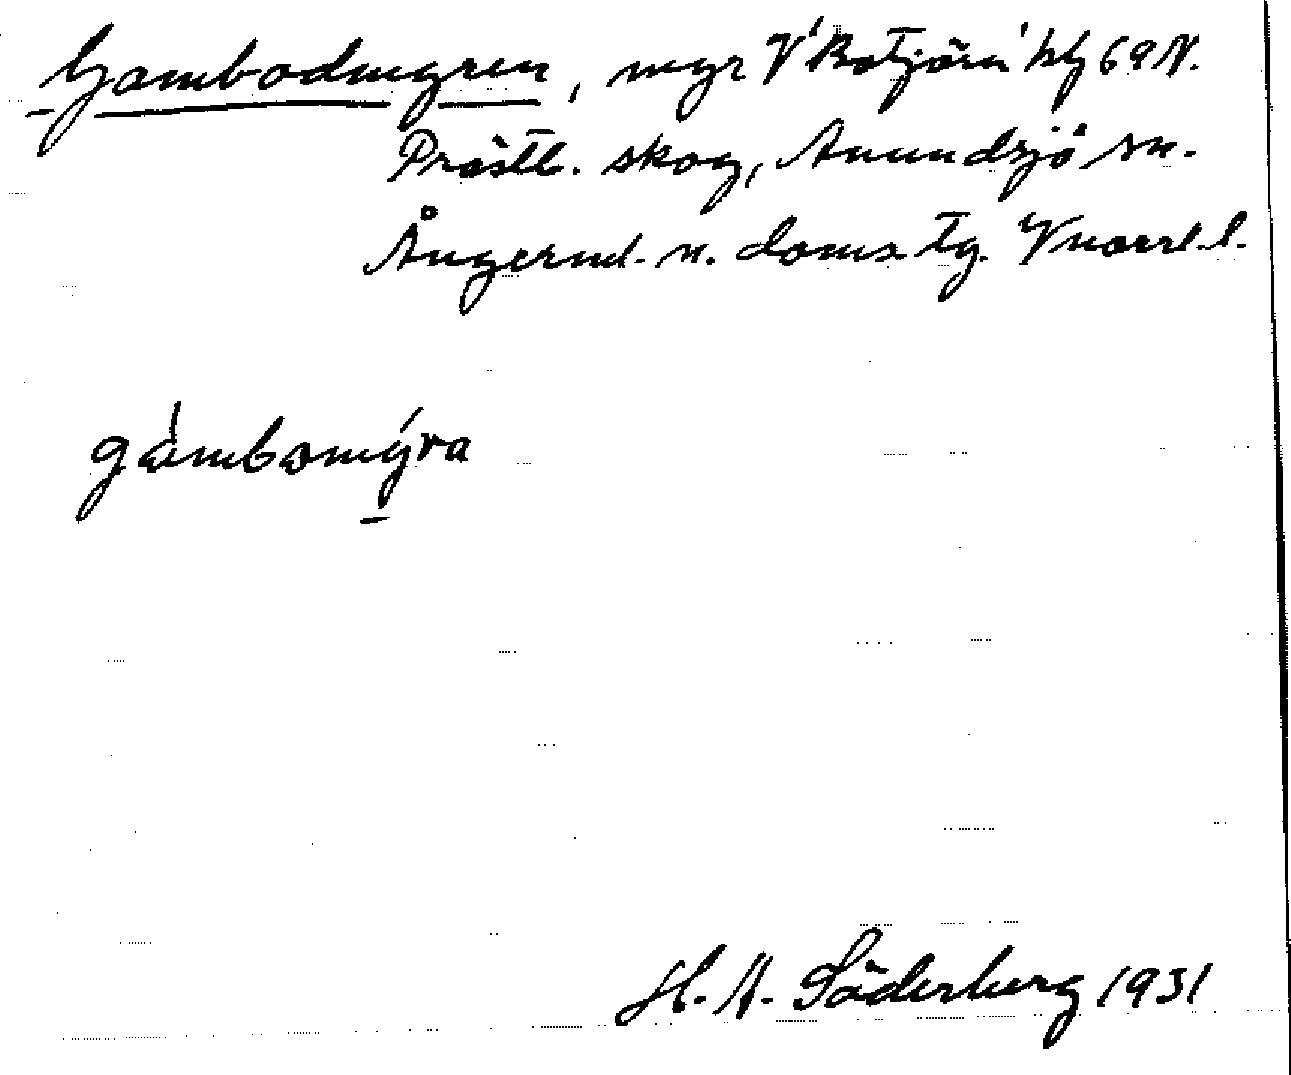 Gambodmyren, myr V 'Ботjärn' blj 69 N.
Prästb. skog, Anundsjö sn.
Ångerml. n. doms. tg. Vnorrl. l.
gámbomýra
H. A. Söderberg 1931